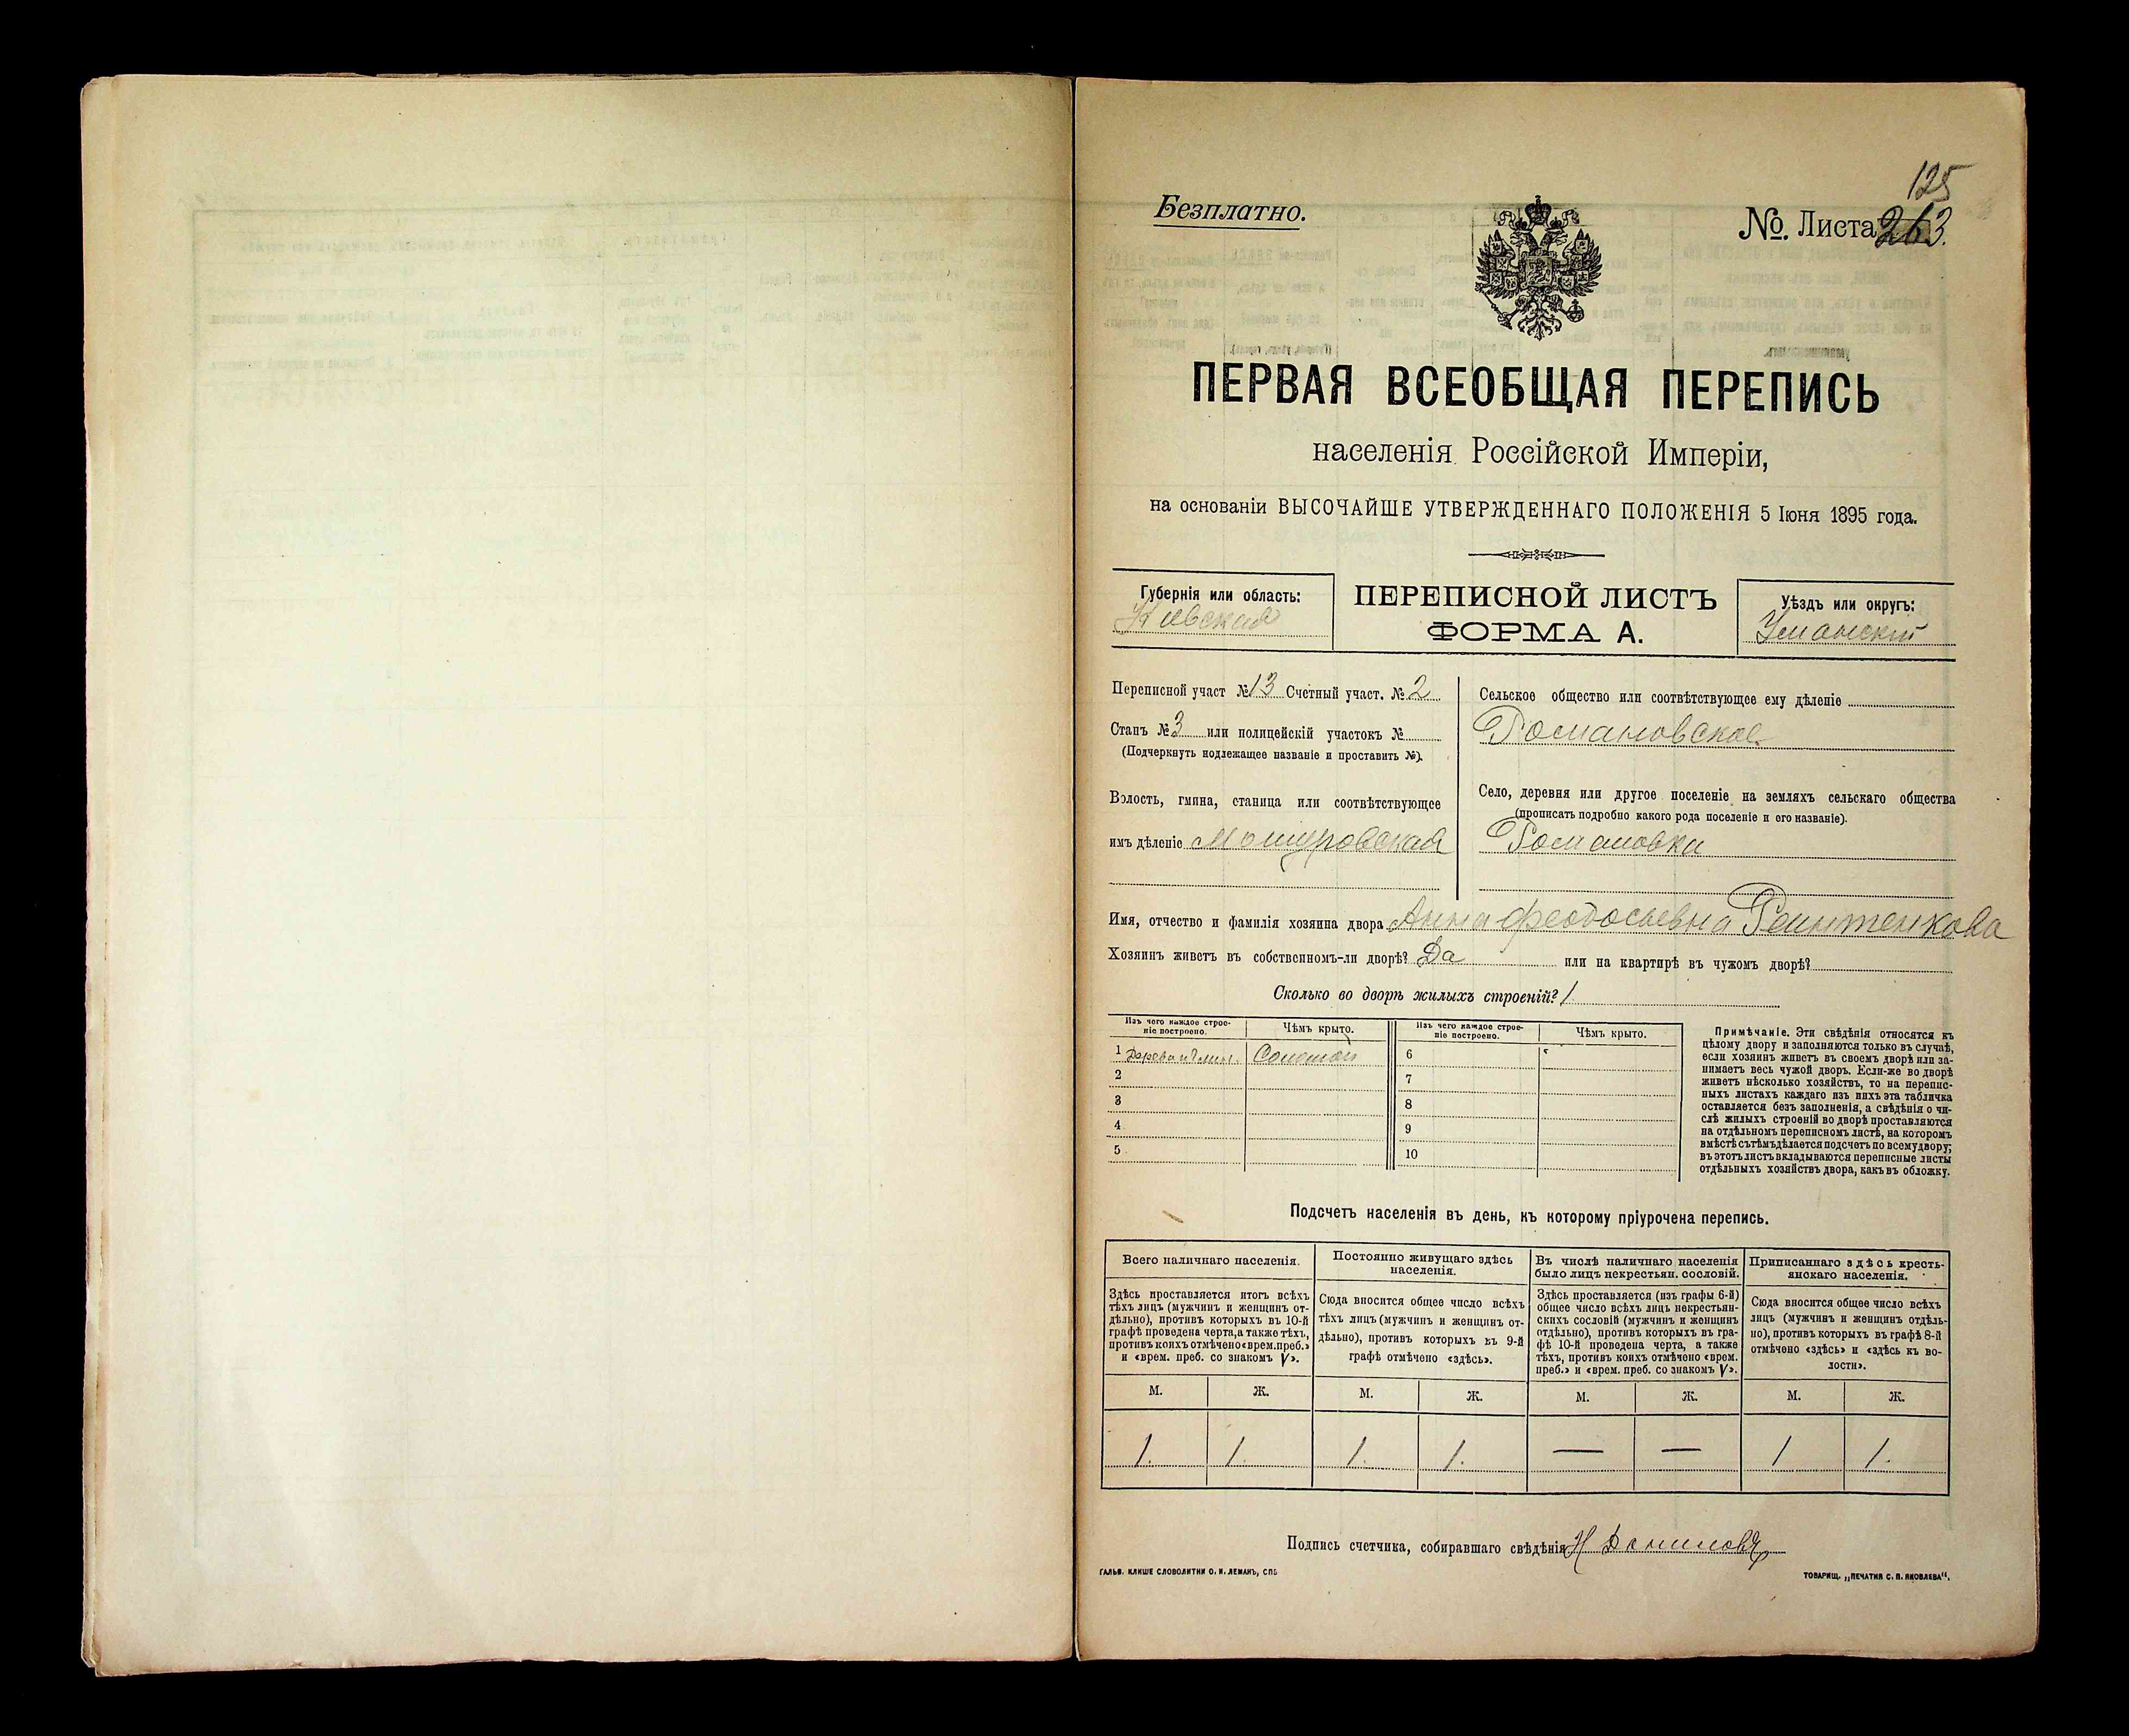 125
Безплатно.
№. Листа 263.
ПЕРВАЯ ВСЕОБЩАЯ ПЕРЕПИСЬ
населенія Россійской Имперіи,
на основаніи ВЫСОЧАЙШЕ УТВЕРЖДЕННАГО ПОЛОЖЕНІЯ 5 Іюня 1895 года.
Губернія или область:
Кіевская
ПЕРЕПИСНОЙ ЛИСТЪ
ФОРМА А.
Уѣздъ или округъ:
Уманскій
Переписной участ № 13 Счетный участ. № 2
Станъ № 3 или полицейскій участокъ №
(Подчеркнуть подлежащее названіе и проставить №).
Волость, гмина, станица или соотвѣтствующее
имъ дѣленіе
Сельское общество или соотвѣтствующее ему дѣленіе
Романовское
Село, деревня или другое поселеніе на земляхъ сельскаго общества
(прописать подробно какого рода поселеніе и его названіе).
Романовка
Имя, отчество и фамилія хозяина двора Анна Феодосьевна
Хозяинъ живетъ въ собственномъ-ли дворѣ? Да или на квартирѣ въ чужомъ дворѣ?
Сколько во дворѣ жилыхъ строеній? 1
Изъ чего каждое строе-
ніе построено.
Чѣмъ крыто.
Изъ чего каждое строе-
ніе построено.
Чѣмъ крыто.
1 6
2 7
3 8
4 9
5 10
Примѣчаніе. Эти свѣдѣнія относятся къ
цѣлому двору и заполняются только въ случаѣ,
если хозяинъ живетъ въ своемъ дворѣ или за-
нимаетъ весь чужой дворъ. Если-же во дворѣ
живетъ нѣсколько хозяйствъ, то на перепис-
ныхъ листахъ каждаго изъ нихъ эта табличка
оставляется безъ заполненія, а свѣдѣнія о чи-
слѣ жилыхъ строеній во дворѣ проставляются
на отдѣльномъ переписномъ листѣ, на которомъ
вмѣстѣ съ тѣмъ дѣлается подсчетъ по всему двору;
въ этотъ листъ вкладываются переписные листы
отдѣльныхъ хозяйствъ двора, какъ въ обложку.
Подсчетъ населенія въ день, къ которому пріурочена перепись.
Всего наличнаго населенія.
Здѣсь проставляется итогъ всѣхъ
тѣхъ лицъ (мужчинъ и женщинъ от-
дѣльно), противъ которыхъ въ 10-й
графѣ проведена черта, а также тѣхъ,
противъ коихъ отмѣчено «врем. преб.»
и «врем. преб. со знакомъ V».
Постоянно живущаго здѣсь
населенія.
Сюда вносится общее число всѣхъ
тѣхъ лицъ (мужчинъ и женщинъ от-
дѣльно), противъ которыхъ въ 9-й
графѣ отмѣчено «здѣсь».
Въ числѣ наличнаго населенія
было лицъ некрестьян. сословій.
Здѣсь проставляется (изъ графы 6-й)
общее число всѣхъ лицъ некрестьян-
скихъ сословій (мужчинъ и женщинъ
отдѣльно), противъ которыхъ въ гра-
фѣ 10-й проведена черта, а также
тѣхъ, противъ коихъ отмѣчено «врем.
преб.» и «врем. преб. со знакомъ V».
Приписаннаго здѣсь кресть-
янскаго населенія.
Сюда вносится общее число всѣхъ
лицъ (мужчинъ и женщинъ отдѣль-
но), противъ которыхъ въ графѣ 8-й
отмѣчено «здѣсь» и «здѣсь къ во-
лости».
М. Ж. М. Ж. М. Ж. М. Ж.
1. 1. 1. 1. — — 1 1.
Подпись счетчика, собиравшаго свѣдѣнія Н Даниловъ
ГАЛЬВ. КЛИШЕ СЛОВОЛИТНИ О. И. ЛЕМАНЪ, СПБ
ТОВАРИЩ. „ПЕЧАТНЯ С. П. ЯКОВЛЕВА“.